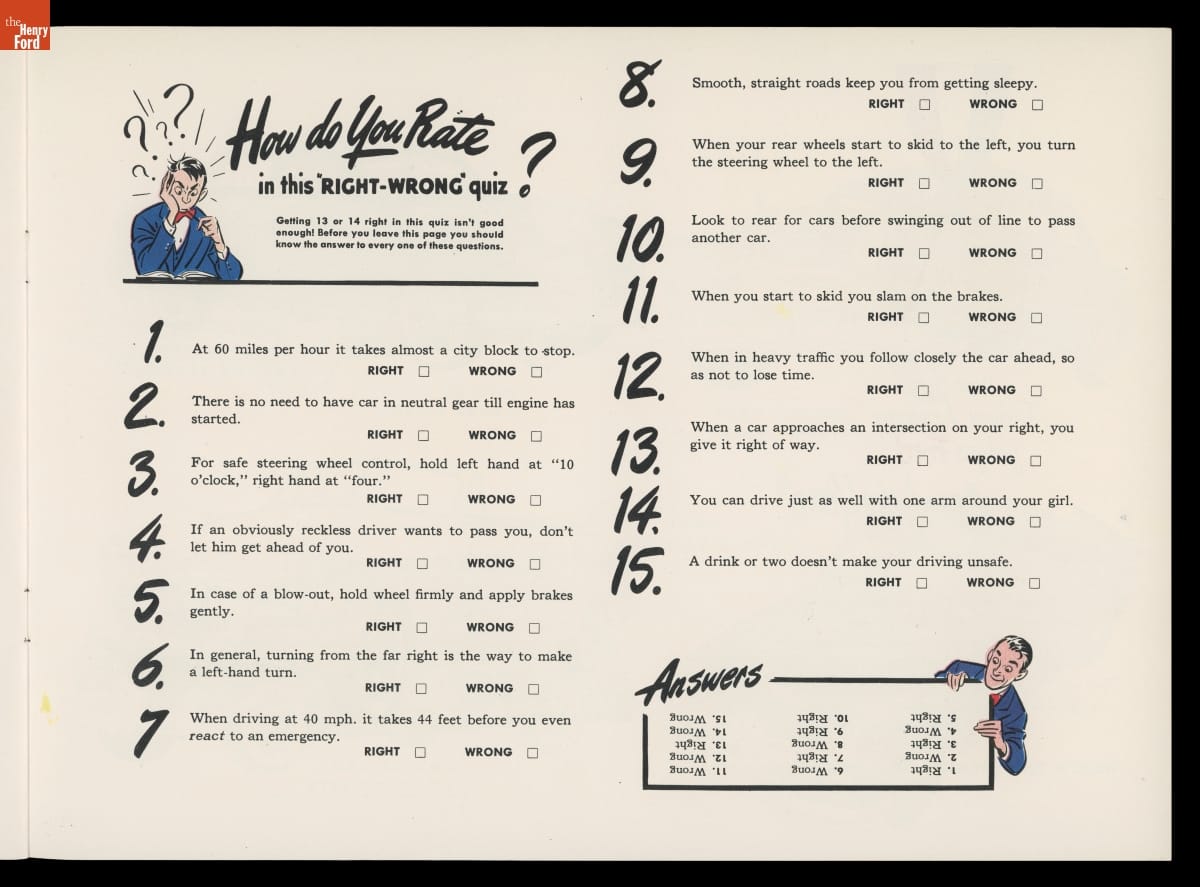 the
Henry
Ford
? ? ? ? ?
How do You Rate
in this "RIGHT-WRONG" quiz ?
Getting 13 or 14 right in this quiz isn't good
enough! Before you leave this page you should
know the answer to every one of these questions.
1. At 60 miles per hour it takes almost a city block to stop.
RIGHT ☐ WRONG ☐
2. There is no need to have car in neutral gear till engine has
started.
RIGHT ☐ WRONG ☐
3. For safe steering wheel control, hold left hand at "10
o'clock," right hand at "four."
RIGHT ☐ WRONG ☐
4. If an obviously reckless driver wants to pass you, don't
let him get ahead of you.
RIGHT ☐ WRONG ☐
5. In case of a blow-out, hold wheel firmly and apply brakes
gently.
RIGHT ☐ WRONG ☐
6. In general, turning from the far right is the way to make
a left-hand turn.
RIGHT ☐ WRONG ☐
7 When driving at 40 mph. it takes 44 feet before you even
react to an emergency.
RIGHT ☐ WRONG ☐
8. Smooth, straight roads keep you from getting sleepy.
RIGHT ☐ WRONG ☐
9. When your rear wheels start to skid to the left, you turn
the steering wheel to the left.
RIGHT ☐ WRONG ☐
10. Look to rear for cars before swinging out of line to pass
another car.
RIGHT ☐ WRONG ☐
11. When you start to skid you slam on the brakes.
RIGHT ☐ WRONG ☐
12. When in heavy traffic you follow closely the car ahead, so
as not to lose time.
RIGHT ☐ WRONG ☐
13. When a car approaches an intersection on your right, you
give it right of way.
RIGHT ☐ WRONG ☐
14. You can drive just as well with one arm around your girl.
RIGHT ☐ WRONG ☐
15. A drink or two doesn't make your driving unsafe.
RIGHT ☐ WRONG ☐
Answers
1. Right
2. Wrong
3. Right
4. Wrong
5. Right
6. Wrong
7. Right
8. Wrong
9. Right
10. Right
11. Wrong
12. Wrong
13. Right
14. Wrong
15. Wrong